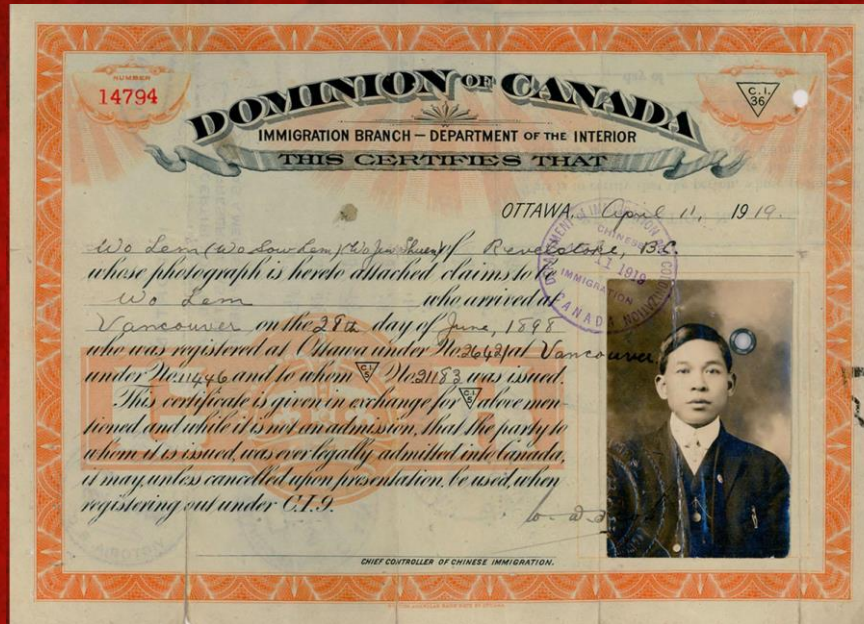 NUMBER
14794
C.I.
36
DOMINION OF CANADA
IMMIGRATION BRANCH — DEPARTMENT OF THE INTERIOR
THIS CERTIFIES THAT
OTTAWA, April 11, 1919.
Wo Lem (Wo Sow Lem) (Wo Jew Shuey) of Revelstoke, B.C.
whose photograph is hereto attached claims to be
Wo Lem who arrived at
Vancouver on the 28th day of June, 1898
who was registered at Ottawa under No. 26421 at Vancouver
under No. 11446 and to whom C.I. 5 No. 21183 was issued.
This certificate is given in exchange for C.I. 5 above men-
tioned and while it is not an admission, that the party to
whom it is issued, was ever legally admitted into Canada,
it may, unless cancelled upon presentation, be used, when
registering out under C.I.9.
CHIEF CONTROLLER OF CHINESE IMMIGRATION.
DEPARTMENT OF IMMIGRATION AND COLONIZATION
CHINESE
11 1919
IMMIGRATION
CANADA